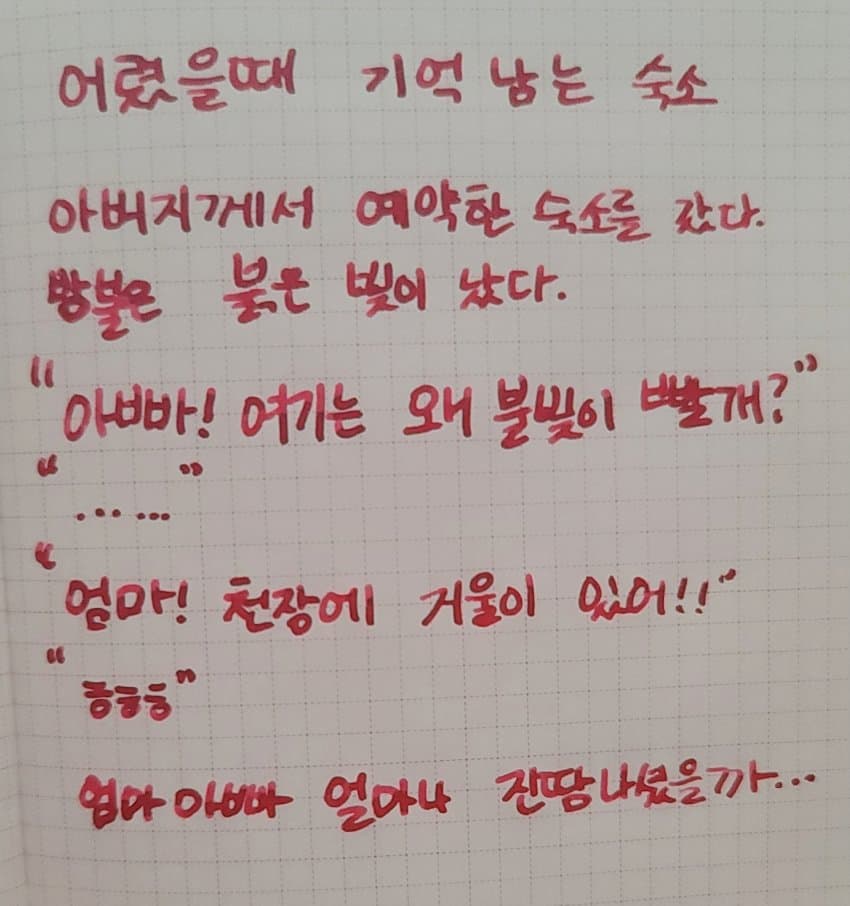 어렸을때 기억 남는 숙소
아버지께서 예약한 숙소를 갔다.
방불은 붉은 빛이 났다.
"아빠! 여기는 왜 불빛이 빨개?"
"... ..."
"엄마! 천장에 거울이 있어!!"
"흠흠흠"
엄마 아빠 얼마나 진땀나셨을까...